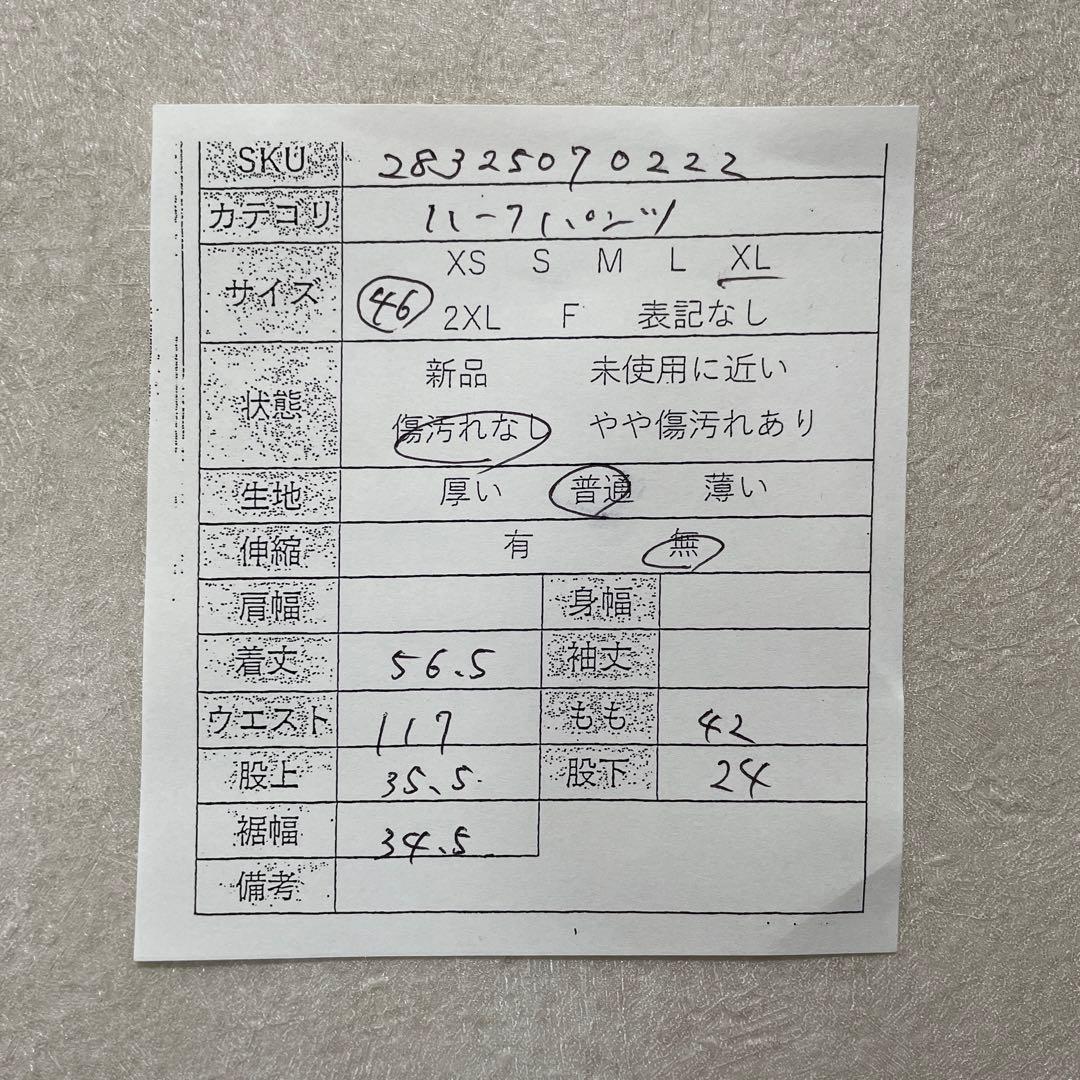 SKU 28325070222
カテゴリ ハーフパンツ
サイズ XS S M L XL
46 2XL F 表記なし
状態 新品 未使用に近い
傷汚れなし やや傷汚れあり
生地 厚い 普通 薄い
伸縮 有 無
肩幅 身幅
着丈 56.5 袖丈
ウエスト 117 もも 42
股上 35.5 股下 24
裾幅 34.5
備考